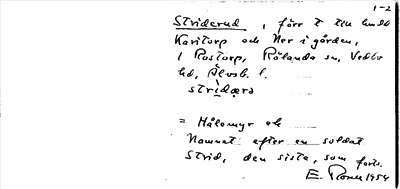 1-2
Striderud, förr t till
Karitorp och Ner i gården,
1 Rostorp, Rölanda sn, Vedbo
hd, Älvsb. l.
= Hålemyr
Namnet efter en soldat
Strid, den siste, som
E. 1954